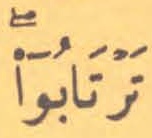 تَرْتَابُوٓا۟ ۖ